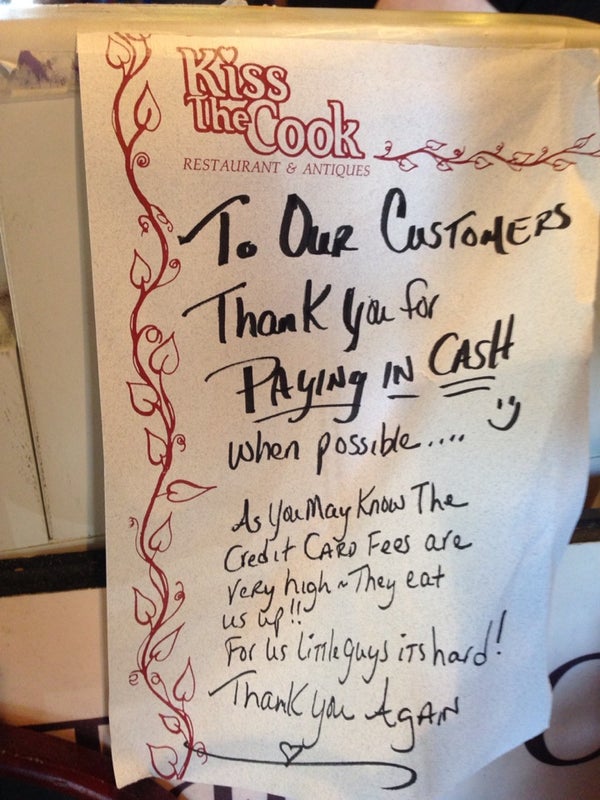 Kiss
The Cook
RESTAURANT & ANTIQUES
To Our Customers
Thank you for
Paying in Cash
when possible....
As You May Know The
Credit Card Fees are
very high ~ They eat
us up!!
For us little guys its hard!
Thank you Again